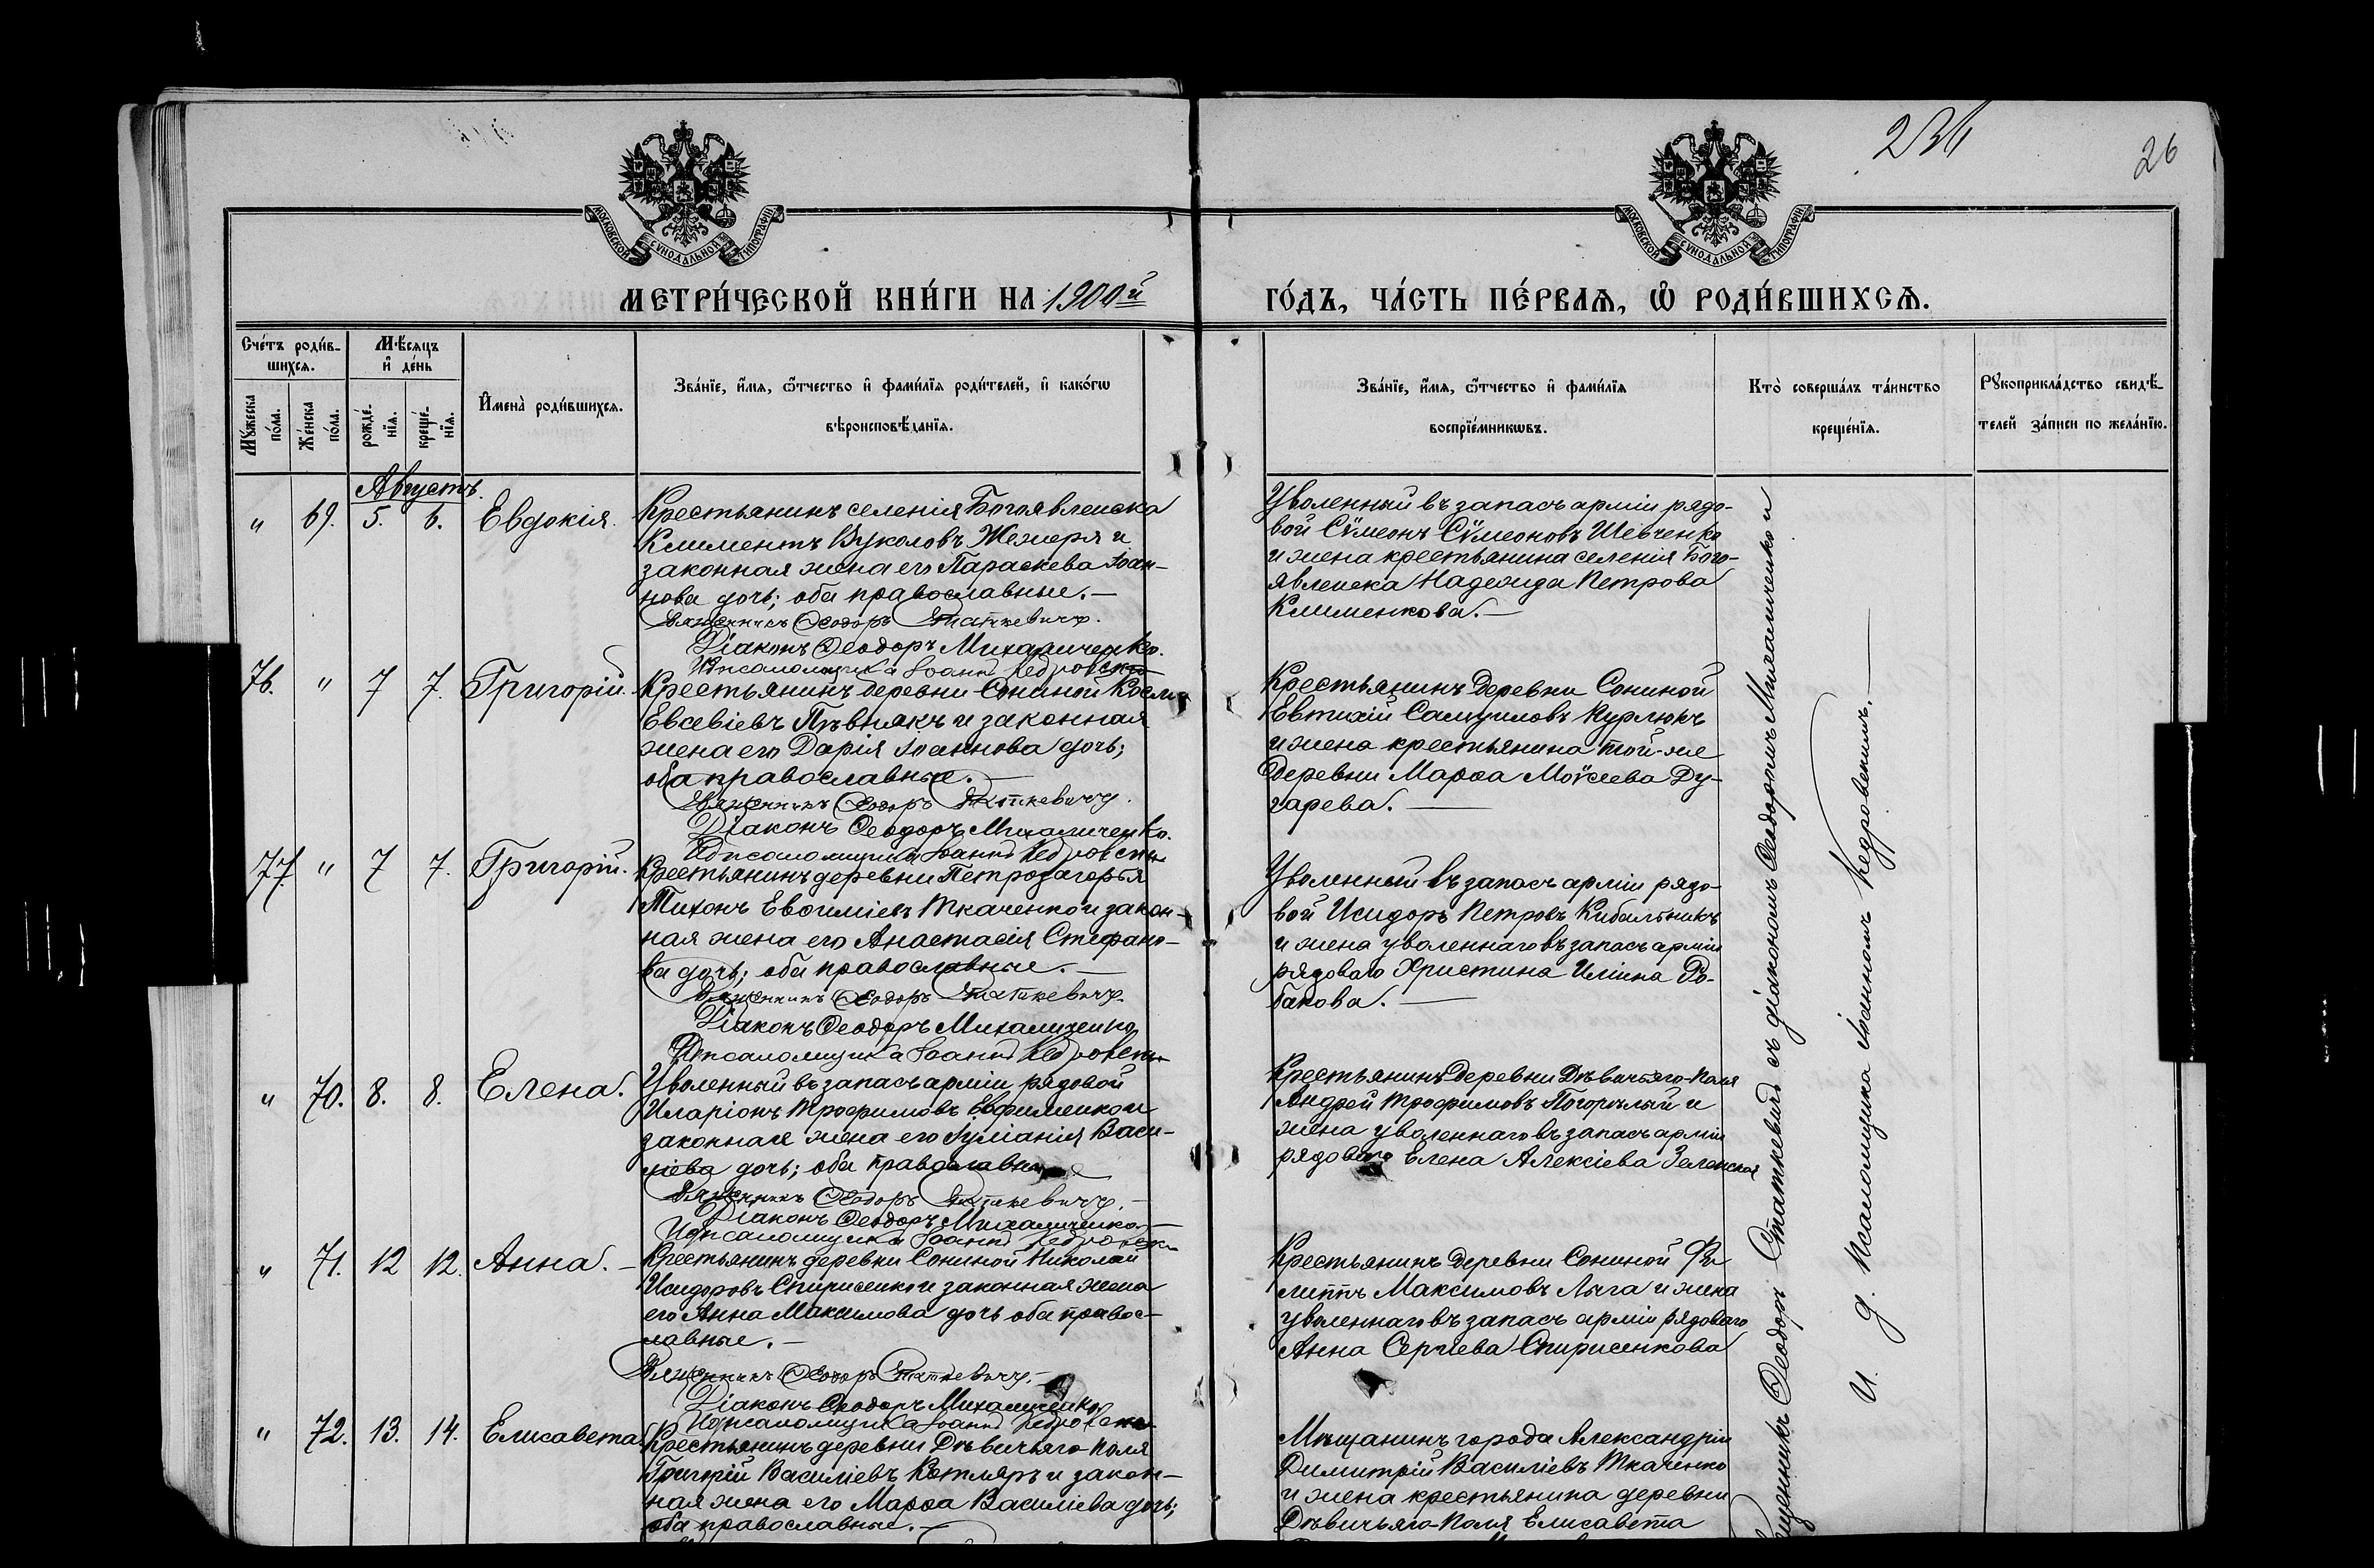 236
26
МОСКОВСКОЙ СѴНОДАЛЬНОЙ ТИПОГРАФІИ
МОСКОВСКОЙ СѴНОДАЛЬНОЙ ТИПОГРАФІИ
МЕТРИ́ЧЕСКОЙ КНИ́ГИ НА 1900й ГО́ДЪ, ЧА́СТЬ ПЕ́РВАѦ, Ѽ РОДИ́ВШИХСѦ.
Сче́тъ роди́в-
шихсѧ.
Мꙋ́жеска по́ла.
Же́нска по́ла.
Мѣ́сѧцъ и҆ де́нь
рожде́-нїѧ.
креще́-нїѧ.
И҆мена̀ роди́вшихсѧ.
Зва́нїе, и҆́мѧ, ѻ҆́тчество и҆ фамѝлїѧ роди́телей, и҆ како́гѡ
вѣроисповѣ́данїѧ.
Зва́нїе, и҆́мѧ, ѻ҆́тчество и҆ фами́лїѧ
воспрїе́мникѡвъ.
Кто̀ соверша́лъ та́инство
креще́нїѧ.
Рꙋкоприкла́дство свидѣ́-
телей за́писи по жела́нїю.
Августъ.
" 69. 5. 6. Евдокія.
Крестьянинъ селенія Богоявленска
Климентъ Вуколовъ Жежеря и
законная жена его Параскева Іоан-
нова дочь; оба православные.—
Священникъ Ѳеодоръ Статкевичъ.
Діаконъ Ѳеодоръ Михаличенко.
И д псаломщика Іоаннъ Кедровскій
Уволенный въ запасъ арміи рядо-
вой Сѵмеонъ Сѵмеоновъ Шевченко
и жена крестьянина селенія Бого-
явленска Надежда Петрова
Клименкова.—
76. " 7 7. Григорій.
Крестьянинъ деревни Сониной Косма
Евсевіевъ Пѣвнякъ и законная
жена его Дарія Іоаннова дочь;
оба православные.—
Священникъ Ѳеодоръ Статкевичъ.
Діаконъ Ѳеодоръ Михаличенко.
И д псаломщика Іоаннъ Кедровскій
Крестьянинъ деревни Сониной
Евтихій Самуиловъ Курлюкъ
и жена крестьянина той-же
деревни Марѳа Моѵсеева Ду-
гарева.—
77. " 7 7. Григорій.
Крестьянинъ деревни Петрозагорья
Тихонъ Евѳиміевъ Ткаченко и закон-
ная жена его Анастасія Стефано-
ва дочь; оба православные.—
Священникъ Ѳеодоръ Статкевичъ.
Діаконъ Ѳеодоръ Михаличенко
И д псаломщика Іоаннъ Кедровскій
Уволенный въ запасъ арміи рядо-
вой Исидоръ Петровъ Кибальникъ
и жена уволеннаго въ запасъ арміи
рядоваго Христина Иліина Ро-
бакова.—
" 70. 8. 8. Елена.
Уволенный въ запасъ арміи рядовой
Иларіонъ Трофимовъ Евфименко и
законная жена его Іуліанія Васи-
ліева дочь; оба православные
Священникъ Ѳеодоръ Статкевичъ.—
Діаконъ Ѳеодоръ Михаличенко
И д псаломщика Іоаннъ Кедровскій
Крестьянинъ деревни Дѣвичьяго-Поля
Андрей Трофимовъ Погорѣлый и
жена уволеннаго въ запасъ арміи
рядоваго Елена Алексіева Зеленская
" 71. 12 12. Анна.—
Крестьянинъ деревни Сониной Николай
Исидоровъ Спирисенко и законная жена
его Анна Максимова дочь оба правос-
лавные.—
Священникъ Ѳеодоръ Статкевичъ.—
Діаконъ Ѳеодоръ Михаличенко
И д псаломщика Іоаннъ Кедровскій
Крестьянинъ деревни Сониной Фи-
липпъ Максимовъ Лыга и жена
уволеннаго въ запасъ арміи рядоваго
Анна Сергіева Спирисенкова
" 72. 13. 14. Елисавета.
Крестьянинъ деревни Дѣвичьяго-Поля
Григорій Василіевъ Котляръ и закон-
ная жена его Марѳа Василіева дочь;
оба православные.—
Мѣщанинъ города Александріи
Димитрій Василіевъ Ткаченко
и жена крестьянина деревни
Дѣвичьяго-Поля Елисавета
Священникъ Ѳеодоръ Статкевичъ съ діакономъ Ѳеодоромъ Михаличенко и
и. д. псаломщика Іоанномъ Кедровскимъ.—